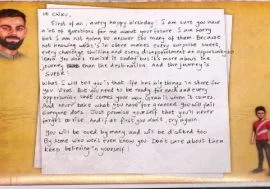 Hi Chiku,
First of all, a very happy birthday! I am sure you have
a lot of questions for me about your future. I am sorry
but I am not going to answer too many of them. Because
not knowing what's in store makes every surprise sweet,
every challenge thrilling and every disappointment an opportunity to
learn. You don't realise it today but it's more about the
journey than the destination. And the journey is
SUPER!
What I will tell you is that life has big things in store for
you Virat. But you need to be ready for each and every
opportunity that comes your way. Grab it when it comes.
And never take what you have for granted. You will fail.
Everyone does. Just promise yourself that you'll never
forget to rise. And if at first you don't, try again.
You will be loved by many and will be disliked too
By some who won't even know you. Don't care about them.
Keep believing in yourself!